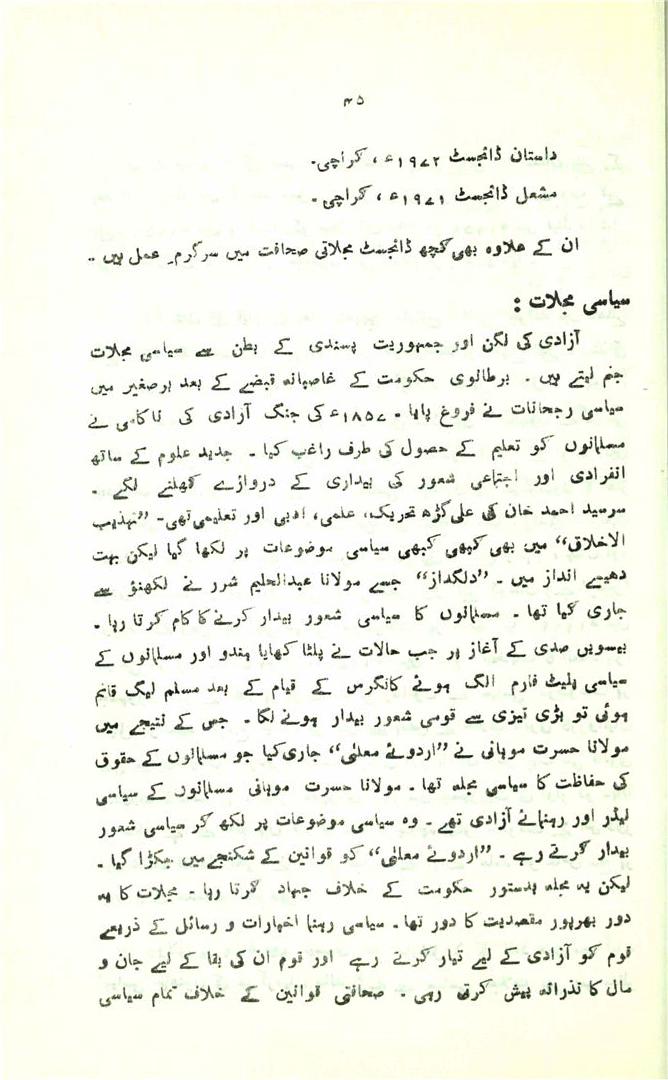 ۴۵
داستان ڈائجسٹ ۱۹۷۲ء ، کراچی۔
مشعل ڈائجسٹ ۱۹۷۱ء ، کراچی ۔
ان کے علاوہ بھی کچھ ڈائجسٹ مجلاتی صحافت میں سرگرم عمل ہیں ۔۔
سیاسی مجلات :
آزادی کی لگن اور جمہوریت پسندی کے بطن سے سیاسی مجلات
جنم لیتے ہیں ۔ برطانوی حکومت کے غاصبانہ قبضے کے بعد برصغیر میں
سیاسی رجحانات نے فروغ پایا ۔ ۱۸۵۷ء کی جنگ آزادی کی ناکامی نے
مسلمانوں کو تعلیم کے حصول کی طرف راغب کیا ۔ جدید علوم کے ساتھ
انفرادی اور اجتماعی شعور کی بیداری کے دروازے کھلنے لگے ۔
سرسید احمد خان کی علی گڑھ تحریک، علمی، ادبی اور تعلیمی تھی۔ ”تہذیب
الاخلاق“ میں بھی کبھی کبھی سیاسی موضوعات پر لکھا گیا لیکن بہت
دھیمے انداز میں ۔ ”دلگداز“ جسے مولانا عبدالحلیم شرر نے لکھنؤ سے
جاری کیا تھا ۔ مسلمانوں کا سیاسی شعور بیدار کرنے کا کام کرتا رہا ۔
بیسویں صدی کے آغاز پر جب حالات نے پلٹا کھایا ہندو اور مسلمانوں کے
سیاسی پلیٹ فارم الگ ہوئے کانگرس کے قیام کے بعد مسلم لیگ قائم
ہوئی تو بڑی تیزی سے قومی شعور بیدار ہونے لگا ۔ جس کے نتیجے میں
مولانا حسرت موہانی نے ”اردوئے معلیٰ“ جاری کیا جو مسلمانوں کے حقوق
کی حفاظت کا سیاسی مجلہ تھا ۔ مولانا حسرت موہانی مسلمانوں کے سیاسی
لیڈر اور رہنمائے آزادی تھے ۔ وہ سیاسی موضوعات پر لکھ کر سیاسی شعور
بیدار کرتے رہے ۔ ”اردوئے معلیٰ“ کو قوانین کے شکنجے میں جکڑا گیا ۔
لیکن یہ مجلہ بدستور حکومت کے خلاف جہاد کرتا رہا ۔ مجلات کا یہ
دور بھرپور مقصدیت کا دور تھا ۔ سیاسی رہنما اخبارات و رسائل کے ذریعے
قوم کو آزادی کے لیے تیار کرتے رہے اور قوم ان کی بقا کے لیے جان و
مال کا نذرانہ پیش کرتی رہی ۔ صحافتی قوانین کے خلاف تمام سیاسی